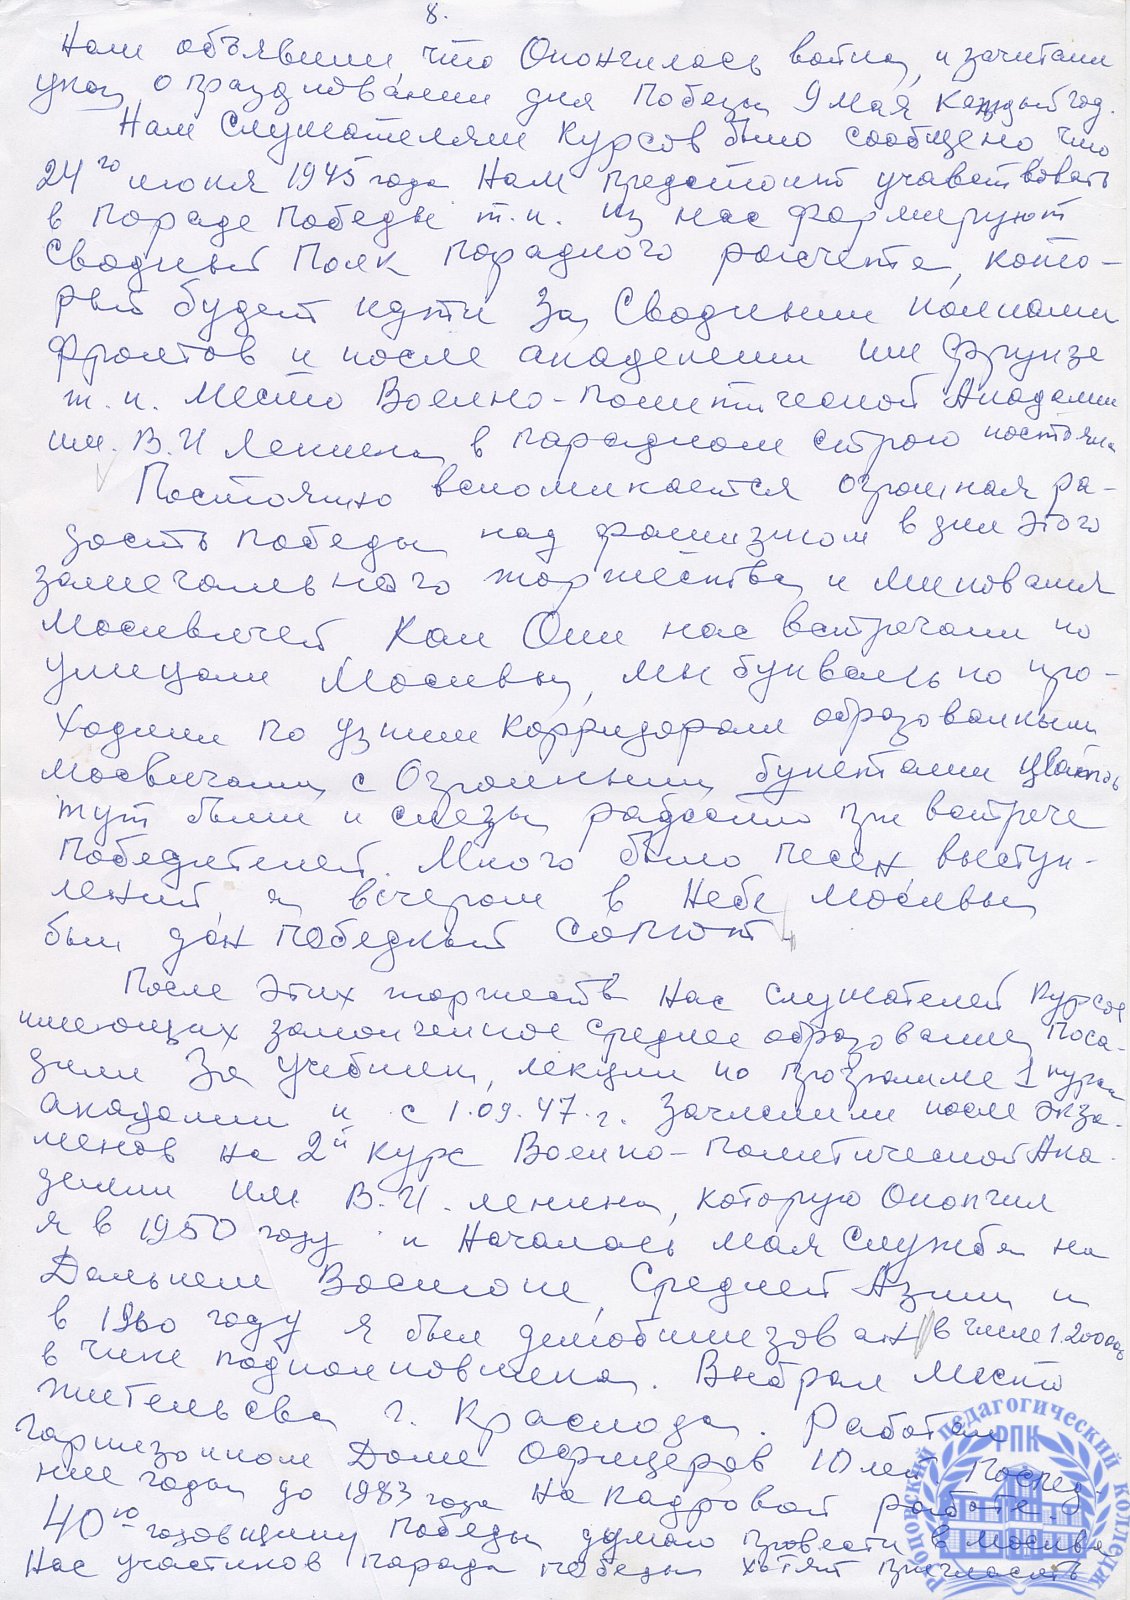 8.
Нам объявили что Окончилась война, и зачитали
указ о праздновании дня Победы 9 мая каждый год.
Нам Слушателям Курсов было сообщено что
24го июня 1945 года Нам предстоит учавствовать
в Параде Победы т.к. из нас формируют
Сводный Полк парадного расчета, кото-
рый будет идти За Сводными полками
Фронтов и после академии им Фрунзе
т.к. Место Военно-политической Академии
им. В.И Ленина в парадном строю постоянна
Постоянно вспоминается огромная ра-
дость победы над фашизмом в дни этого
замечательного торжества и ликования
москвичей. Как Они нас встречали по
улицам Москвы, мы буквально про-
ходили по узким корридорам образованным
москвичами с Огромными букетами цветов
тут были и слезы радости при встрече
победителей. Много было песен, выступ-
лений а вечером в Небе Москвы
был дан победный Салют.
После этих торжеств нас слушателей курсов
имеющих законченное среднее образование, поса-
дили За учебники, лекции по программе 1 курса
академии и с 1.09.47.г. Зачислили после экза-
менов на 2й курс Военно-политической Ака-
демии им. В.И. Ленина, которую Окончил
я в 1950 году и Началась моя Служба на
Дальнем Востоке, Средней Азии и
в 1960 году я был демобилизован в числе 1.200000
в чине подполковника. Выбрал Место
жительсва г. Краснода. Работал
Гарнизонном Доме Офицеров 10 лет Послед-
ние годы до 1983 года на кадровой работе.
40ю годовщину Победы думаю провести в Москве
Нас участиков парада победы хотят пригласить
Ропповский педагогический колледж
РПК